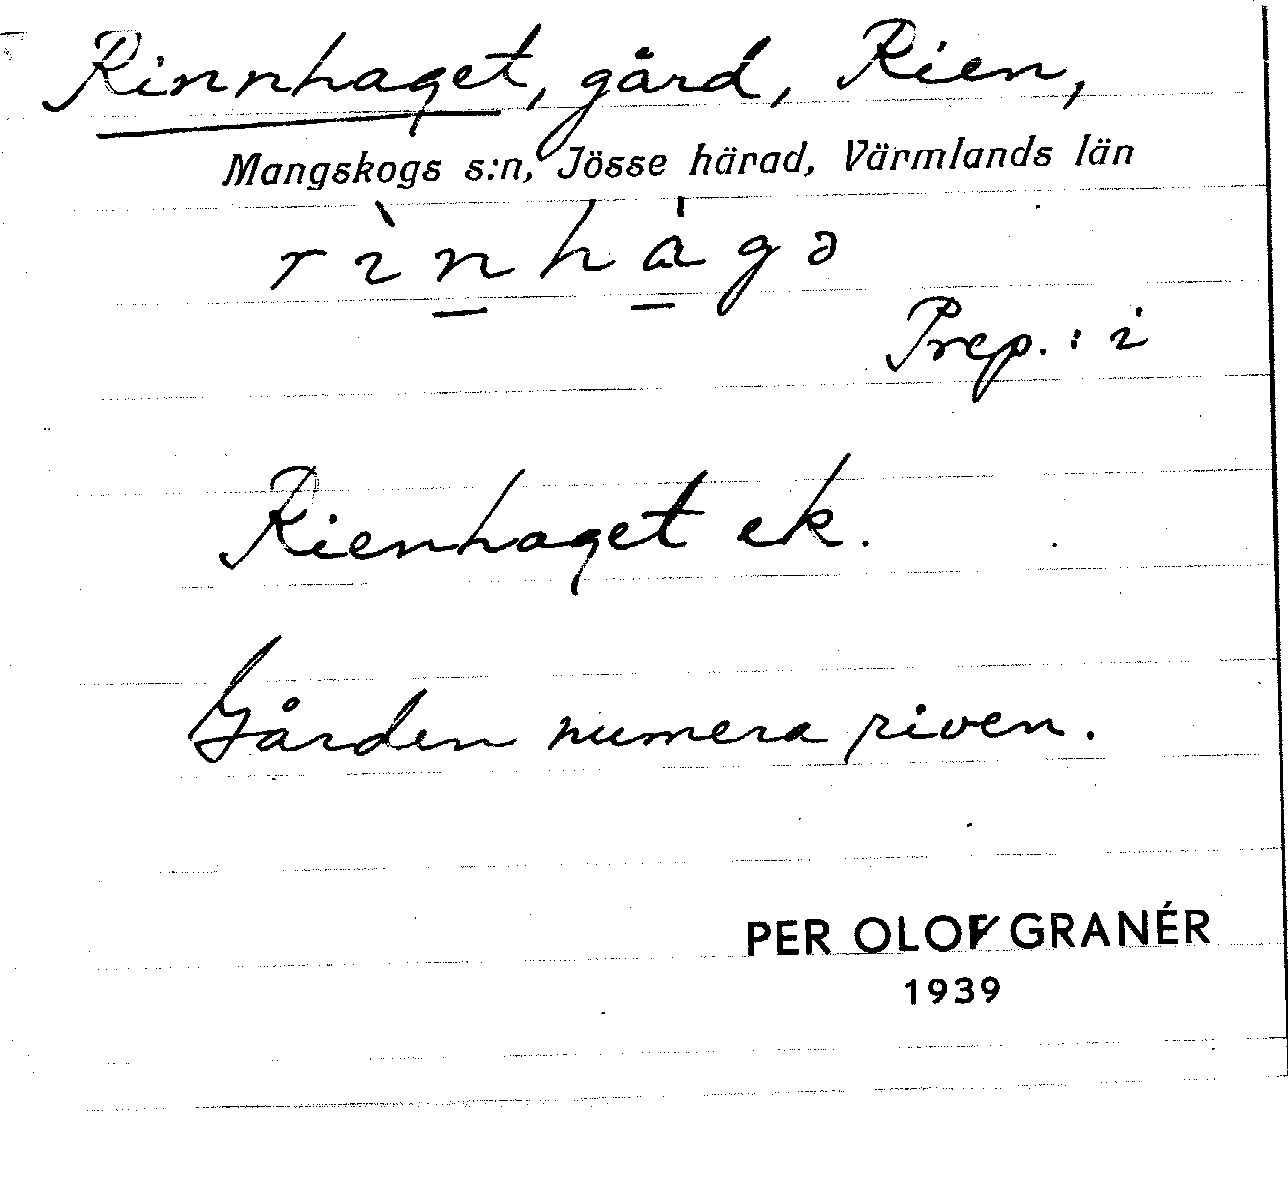 Rinnhaget, gård, Rien,
Mangskogs s:n, Jösse härad, Värmlands län
rìn̲há̲gə
Prep.: i
Rienhaget ek.
Gården numera riven.
PER OLOV GRANÉR
1939